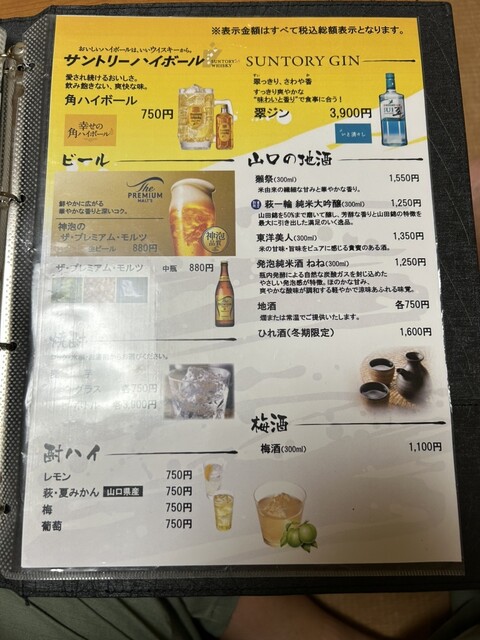 ※表示金額はすべて税込総額表示となります。
おいしいハイボールは、いいウイスキーから。
サントリーハイボール
SUNTORY WHISKY
愛され続けるおいしさ。
飲み飽きない、爽快な味。
角ハイボール 750円
幸せの
角ハイボール
SUNTORY GIN
翠っきり、さわや香
すっきり爽やかな
“味わいと香り”で食事に合う!
翠ジン 3,900円
ビール
The
PREMIUM
MALT'S
鮮やかに広がる
華やかな香りと深いコク。
神泡の
ザ・プレミアム・モルツ
生ビール 880円
神泡
品質
ザ・プレミアム・モルツ 中瓶 880円
各750円
酎ハイ
レモン 750円
萩・夏みかん 山口県産 750円
梅 750円
葡萄 750円
山口の地酒
獺祭(300ml) 1,550円
米由来の繊細な甘みと華やかな香り。
萩一輪 純米大吟醸(300ml) 1,250円
山田錦を50%まで磨いて醸し、芳醇な香りと山田錦の特徴を
最大に引き出した満足のいく逸品。
東洋美人(300ml) 1,350円
米の甘味・旨味をピュアに感じる食賓のある酒。
発泡純米酒 ねね(300ml) 1,250円
瓶内発酵による自然な炭酸ガスを封じ込めた
やさしい発泡感が特徴。ほのかな甘み、
爽やかな酸味が調和する軽やかで涼味あふれる味覚。
地酒 各750円
燗または常温でご提供いたします。
ひれ酒(冬期限定) 1,600円
梅酒
梅酒(300ml) 1,100円